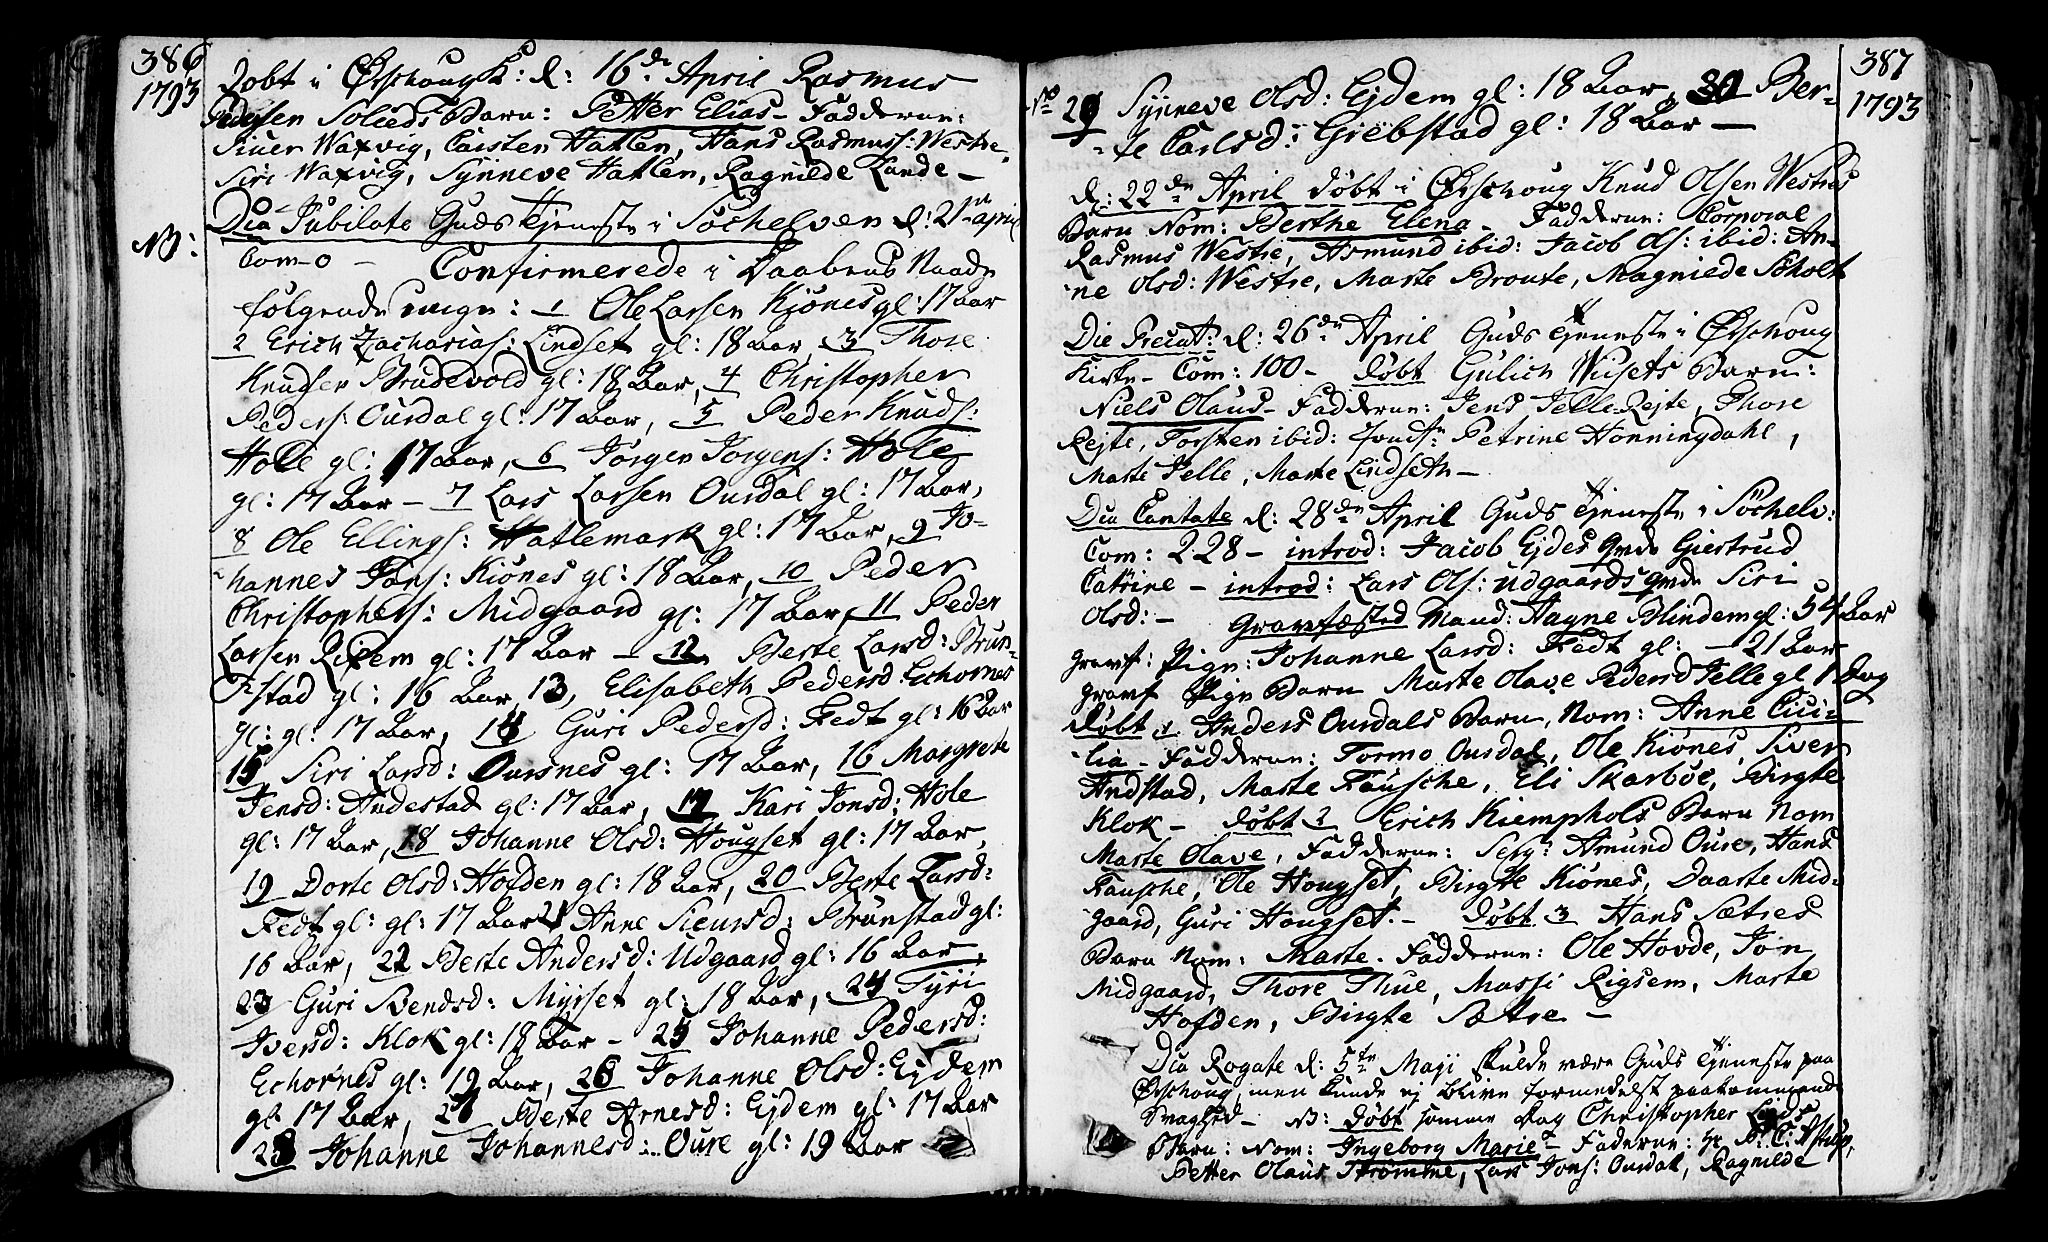 386
1793
Døbt i Ørschoug K: d: 16de April Rasmus
Pedersen Soleds Barn: Petter Elias - Fadderne:
Siuer Waxvig, Carsten Hatlen, Hans Rasmuss: Westre,
Siri Waxvig, Synneve Hatlen, Ragnilde Lande -
Dia Jubilate Guds Tjeneste i Søchelven d: 21de april
NB:
Com - 0 - Confirmerede i Daabens Naade
følgende unge: 1 Ole Larsen Kiønes gl: 17 Aar
2 Erich Zacharias: Lindset gl: 18 Aar, 3 Thore
Knudsen Brudevold gl: 18 Aar, 4 Christopher
Peders: Oursdal gl: 17 Aar, 5 Peder Knuds:
Holle gl: 17 Aar, 6 Jørgen Jørgens: Hole
gl: 17 Aar - 7 Lars Larsen Oursdal gl: 17 Aar,
8 Ole Ellings: Hatlemark gl: 17 Aar, 9 Jo-
hannes Jons: Kiønes gl: 18 Aar, 10 Peder
Christophers: Midgaard gl: 17 Aar, 11 Peder
Larsen Rixem gl: 17 Aar - 12 Berte Larsd: Brun-
stad gl: 16 Aar, 13, Elisabeth Pedersd Echornes
gl: gl: 17 Aar, 14 Guri Pedersd: Fedt gl: 16 Aar
15 Siri Larsd: Oursnes gl: 17 Aar, 16 Margrete
Jensd: Andestad gl: 17 Aar, 17 Kari Jonsd: Hole
gl: 17 Aar, 18 Johanne Olsd: Hougset gl: 17 Aar,
19 Dorte Olsd: Hofden gl: 18 Aar, 20 Berte Larsd:
Fedt gl: gl: 17 Aar 21 Anne Siursd: Brunstad gl:
16 Aar, 22 Berte Andersd: Udgaard gl: 16 Aar,
23 Guri Svendsd: Myrset gl: 18 Aar, 24 Tyri
Iversd: Klok gl: 18 Aar - 25 Johanne Pedersd:
Echornes gl: 19 Aar, 26 Johanne Olsd: Ejdem
gl 17 Aar, 27 Berte Arnesd: Ejdem gl: 17 Aar
28 Johanne Johannesd: Oure gl: 19 Aar
387
1793
No 29 Synneve Olsd: Ejdem gl: 18 Aar, 30 Ber-
te Carlsd: Grebstad gl: 18 Aar -
d: 22de April døbt i Ørschoug Knud Olsen Westres
Barn Nom: Berthe Elena - Fadderne: Corporal
Rasmus Westre, Asmund ibid: Jacob Ols: ibid: An-
ne Olsd: Westre, Marte Broute, Magnilde Scholt
Die Precat: d: 26de April Guds Tjeneste i Ørschoug
Kirke - Com: 100 - døbt Gulich Wisets Barn:
Niels Olaus - Fadderne: Jens Jelle Rejte, Thore
Rejte, Torsten ibid: Petrine Honningdahl,
Marte Jelle, Marte Lindseth -
Dia Cantate d: 28de April Guds Tjeneste i Søchelv:
Com: 228 - introd: Jacob Ejdes qvde Giertrud
Catrine - introd: Lars Ols: Udgaards qvde Siri
Olsd: - Gravfæsted Mand: Aagne Blindem gl: 54 Aar
gravf: Pige: Johanne Larsd: Fedt gl: - 21 Aar
gravf Pige Barn Marte Olave Pedersd Jelle gl 1 Dag
Døbt 1 Anders Oursdals Barn, Nom: Anne Cici-
lia - Fadderne: Tormo Oursdal, Ole Kiønes, Siver
Andstad, Marte Fausche, Eli Skarbøe, Birgte
Klok - døbt 2 Erich Kiemphols Barn Nom
Marte Olave, Fadderne: Serg: Asmund Oure, Hans
Fausche, Ole Hougset, Birgte Kiønes, Daarte Mid-
gaard, Guri Hougset. - Døbt 3 Hans Sætres
Barn Nom: Marte - Fadderne: Ole Hovde, Jon
Midgaard, Thore Thue, Massi Rigsem, Marte
Hofden, Birgte Sætre -
Dia Rogate d: 5te Maji skulde være Guds Tjeneste paa
Ørschoug, men kunde ej blive formedelst paakommende
Svaghed - NB: Døbt samme Dag Christopher Linds
Barn: Nom: Ingeborg Marie - Fadderne: Hr P: C: Astrup,
Petter Olaus Strømme, Lars Jons: Oursdal, Ragnilde